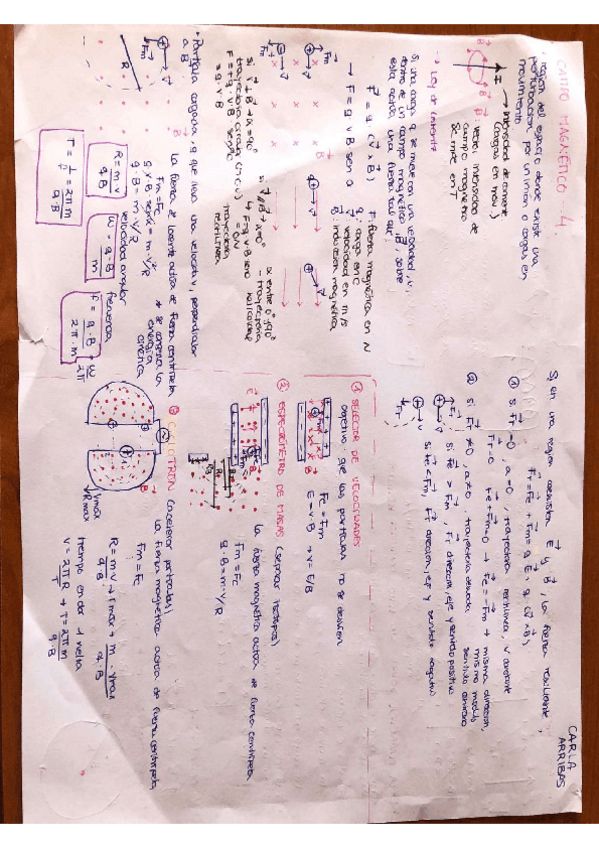 CARLA
ARRIBAS
CAMPO MAGNÉTICO - 4.
región del espacio donde existe una
perturbación por un imán o cargas en
movimiento
I → Intensidad de corriente
(cargas en mov.)
B: vector intensidad de
campo magnético
Se mide en T
→ Ley de Lorentz
Si una carga q se mueve con una velocidad, v,
dentro de un campo magnético, B, sobre
esta actúa una fuerza tal que:
F = q · (v x B)
F: fuerza magnética en N
q: carga en C
v: velocidad en m/s
B: inducción magnética
→ F = q v B sen α
Si v ⊥ B → α = 90°
trayectoria circular (M.C.U)
F = q · v · B
Si v ∥ B → α = 0°
↳ F = q · v · B · sen 0 = 0 N
trayectoria
rectilínea
α entre 0° y 90°
- trayectoria
helicoidal
• Partícula cargada, q, que lleva una velocidad v, perpendicular
a B
La fuerza de Lorentz actúa de fuerza centrípeta
Fm = Fc
q · v · B · sen α = m · v²/R
q · B = m · v/R
* se conserva la
energía
cinética
R = m · v / q · B
velocidad angular
ω = q · B / m
frecuencia
f = q · B / 2π · m
ω / 2π
T = 1/f = 2π m / q · B
Si en una región coexisten E y B, la fuerza resultante:
FT = Fe + Fm = q · E + q (v x B)
① Si FT = 0, a = 0, trayectoria rectilínea, v constante
FT = 0 Fe + Fm = 0 → Fe = -Fm → misma dirección,
mismo módulo
sentido contrario
② Si FT ≠ 0, a ≠ 0, trayectoria desviada
Si Fe > Fm, FT dirección, eje y sentido positivo
Si Fe < Fm, FT dirección, eje y sentido negativo
① SELECTOR DE VELOCIDADES
objetivo: que las partículas no se desvíen
Fe = Fm
E = v · B → v = E/B
② ESPECTRÓMETRO DE MASAS (separar isótopos)
La fuerza magnética actúa de fuerza centrípeta
Fm = Fc
q · B = m · v/R
③ CICLOTRÓN (acelerar partículas)
La fuerza magnética actúa de fuerza centrípeta
Fm = Fc
R = m · v / q · B → rmax → m · vmax / q · B
tiempo en dar 1 vuelta
v = 2π R / T → T = 2π m / q · B
Vmax
Rmax